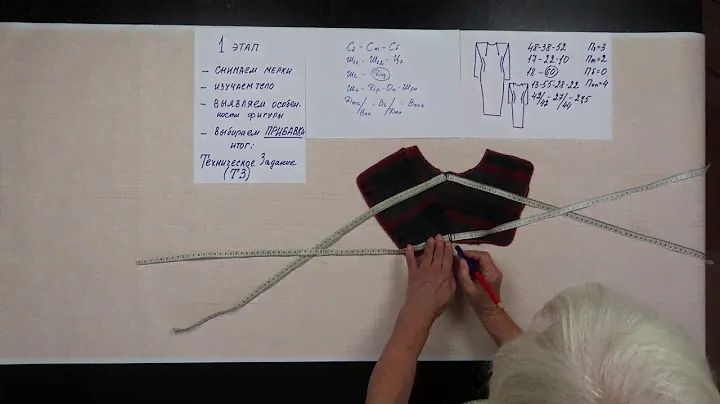 1 ЭТАП
- СНИМАЕМ МЕРКИ
- ИЗУЧАЕМ ТЕЛО
- ВЫЯВЛЯЕМ ОСОБЕН-
НОСТИ ФИГУРЫ
- ВЫБИРАЕМ ПРИБАВКИ
ИТОГ:
ТЕХНИЧЕСКОЕ ЗАДАНИЕ
(ТЗ)
Сг - Ст - Сб
Шг - Цг
Шс - Дтс
Шп - Др - Оп -
48-38-52 Пг=3
17-22-10 Пт=2
18-60 Пб=0
13-55-28-22 Поп=4
42/42 - 21/44 - 21,5